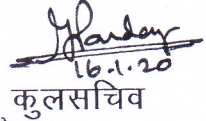 16.1.20
कुलसचिव